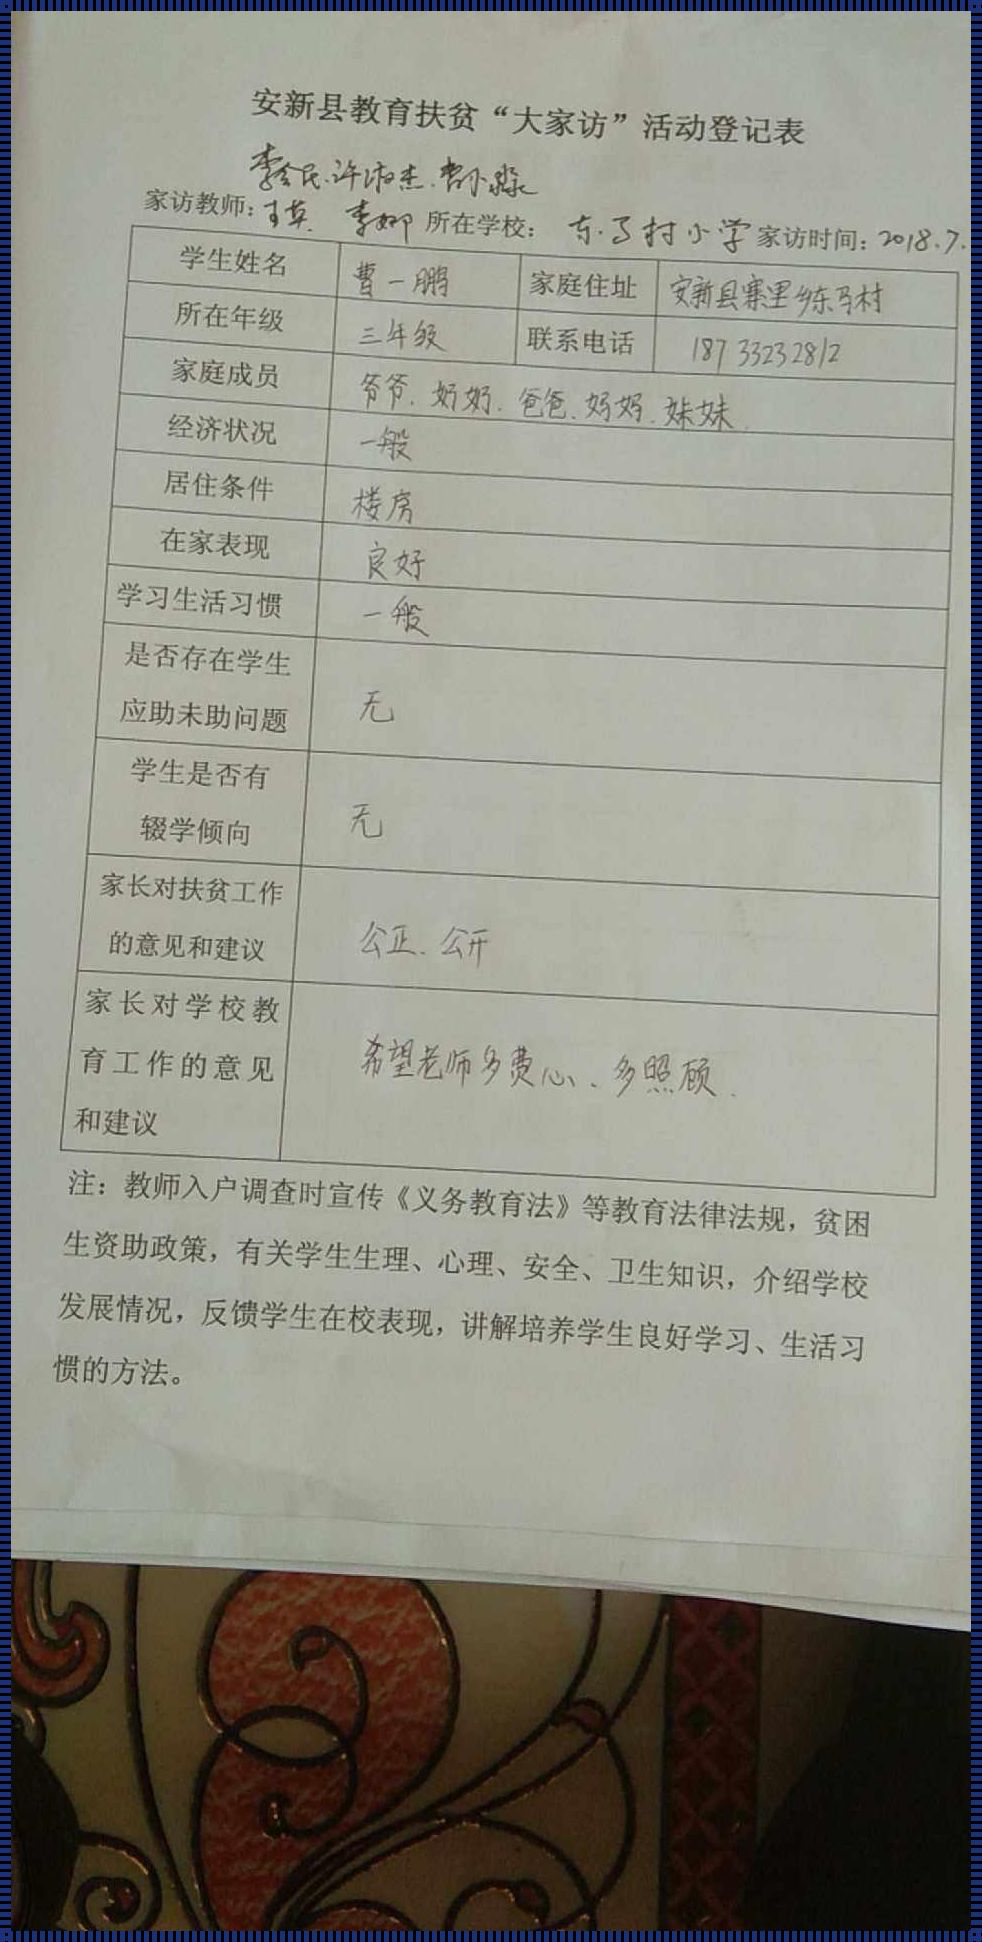 安新县教育扶贫“大家访”活动登记表
李会民、许淑杰、
家访教师：王英 李娜 所在学校：东马村小学 家访时间：2018.7.
学生姓名 曹一鹏 家庭住址 安新县寨里乡东马村
所在年级 三年级 联系电话 18733232812
家庭成员 爷爷、奶奶、爸爸、妈妈、妹妹
经济状况 一般
居住条件 楼房
在家表现 良好
学习生活习惯 一般
是否存在学生
应助未助问题 无
学生是否有
辍学倾向 无
家长对扶贫工作
的意见和建议 公正、公开
家长对学校教
育工作的意见 希望老师多费心、多照顾.
和建议
注：教师入户调查时宣传《义务教育法》等教育法律法规，贫困
生资助政策，有关学生生理、心理、安全、卫生知识，介绍学校
发展情况，反馈学生在校表现，讲解培养学生良好学习、生活习
惯的方法。